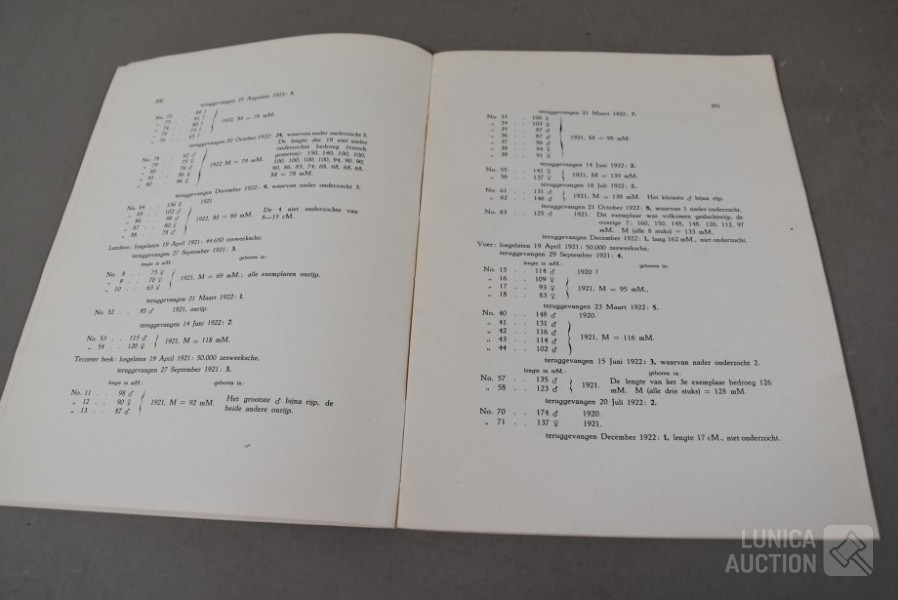 200
teruggevangen 25 Augustus 1922: 5.
No. 72 . . 88
„ 73 . .
„ 74 . .
„ 75 . . 75
„ 76 . . 65
1922, M = 78 mM.
teruggevangen 20 October 1922: 24, waarvan nader onderzocht 5.
No. 78 . . 62 ♂
„ 79 . . 75 ♀
„ 80 . . 76 ♂
„ 81 . . 96 ♀
„ 82 . . 86 ♀
1922 M = 79 mM.
De lengte der 19 niet nader
onderzochte bedroeg (vorsch
gemeten): 150, 140, 100, 100,
100, 100, 100, 100, 94, 90, 90,
90, 86, 85, 74, 68, 68, 68, 68,
M = 78 mM.
teruggevangen December 1922: 9, waarvan nader onderzocht 5.
No. 84 . . 136 ♀ 1921
„ 85 . . 102 ♂
„ 86 . . 98 ♂
„ 87 . . 80 ♀
„ 88 . . 78 ♂
1922, M = 89 mM.
De 4 niet onderzochte van
8—15 cM.
Landeus: losgelaten 19 April 1921: 44.650 zesweeksche.
teruggevangen 27 September 1921: 3.
lengte in mM.: geboren in:
No. 8 . . 75 ♀
„ 9 . . 70 ♀
„ 10 . . 63 ♀
1921, M = 69 mM.; alle exemplaren onrijp.
teruggevangen 21 Maart 1922: 1.
No. 32 . . 85 ♂ 1921, onrijp.
teruggevangen 14 Juni 1922: 2
No. 53 . . 115 ♂
„ 54 . . 120 ♀
1921, M = 118 mM.
Terzieter beek: losgelaten 19 April 1921: 50.000 zesweeksche.
teruggevangen 27 September 1921: 3.
lengte in mM.: geboren in:
No. 11 . . 98 ♂
„ 12 . . 90 ♀
„ 13 . . 87 ♂
1921, M = 92 mM.
Het grootste ♂ bijna rijp, de
beide andere onrijp.
201
teruggevangen 21 Maart 1922: 7.
No. 33 . . 106 ♀
„ 34 . . 103 ♀
„ 35 . . 97 ♂
„ 36 . . 87 ♂
„ 37 . . 96 ♂
„ 38 . . 94 ♀
„ 39 . . 91 ♀
1921, M = 96 mM.
teruggevangen 14 Juni 1922: 2.
No. 55 . . 141 ♀
„ 56 . . 137 ♀
1921, M = 139 mM.
teruggevangen 18 Juli 1922: 2.
No. 61 . . 131 ♂
„ 62 . . 146 ♂
1921, M = 139 mM. Het kleinste ♂ bijna rijp.
teruggevangen 21 October 1922: 8, waarvan 1 nader onderzocht.
No. 83 . . 125 ♂ 1921. Dit exemplaar was volkomen geslachtsrijp, de
overige 7: 160, 150, 148, 148, 126, 112, 97
mM. M (alle 8 stuks) = 133 mM.
teruggevangen December 1922: 1, lang 162 mM., niet onderzocht.
Voer: losgelaten 19 April 1921: 50.000 zesweeksche.
teruggevangen 29 September 1921: 4.
lengte in mM.: geboren in:
No. 15 . . 114 ♂ 1920 ?
„ 16 . . 109 ♀
„ 17 . . 93 ♀
„ 18 . . 83 ♀
1921, M = 95 mM.,
teruggevangen 23 Maart 1922: 5.
No. 40 . . 148 ♂ 1920.
„ 41 . . 131 ♂
„ 42 . . 116 ♂
„ 43 . . 114 ♂
„ 44 . . 102 ♂
1921, M = 116 mM.
teruggevangen 15 Juni 1922: 3, waarvan nader onderzocht 2.
lengte in mM.: geboren in:
No. 57 . . 135 ♂
„ 58 . . 123 ♂
1921. De lengte van het 3e exemplaar bedroeg 126
mM. M (alle drie stuks) = 128 mM.
teruggevangen 20 Juli 1922: 2.
No. 70 . . 174 ♂ 1920.
„ 71 . . 137 ♀ 1921.
teruggevangen December 1922: 1, lengte 17 cM., niet onderzocht.
LUNICA
AUCTION